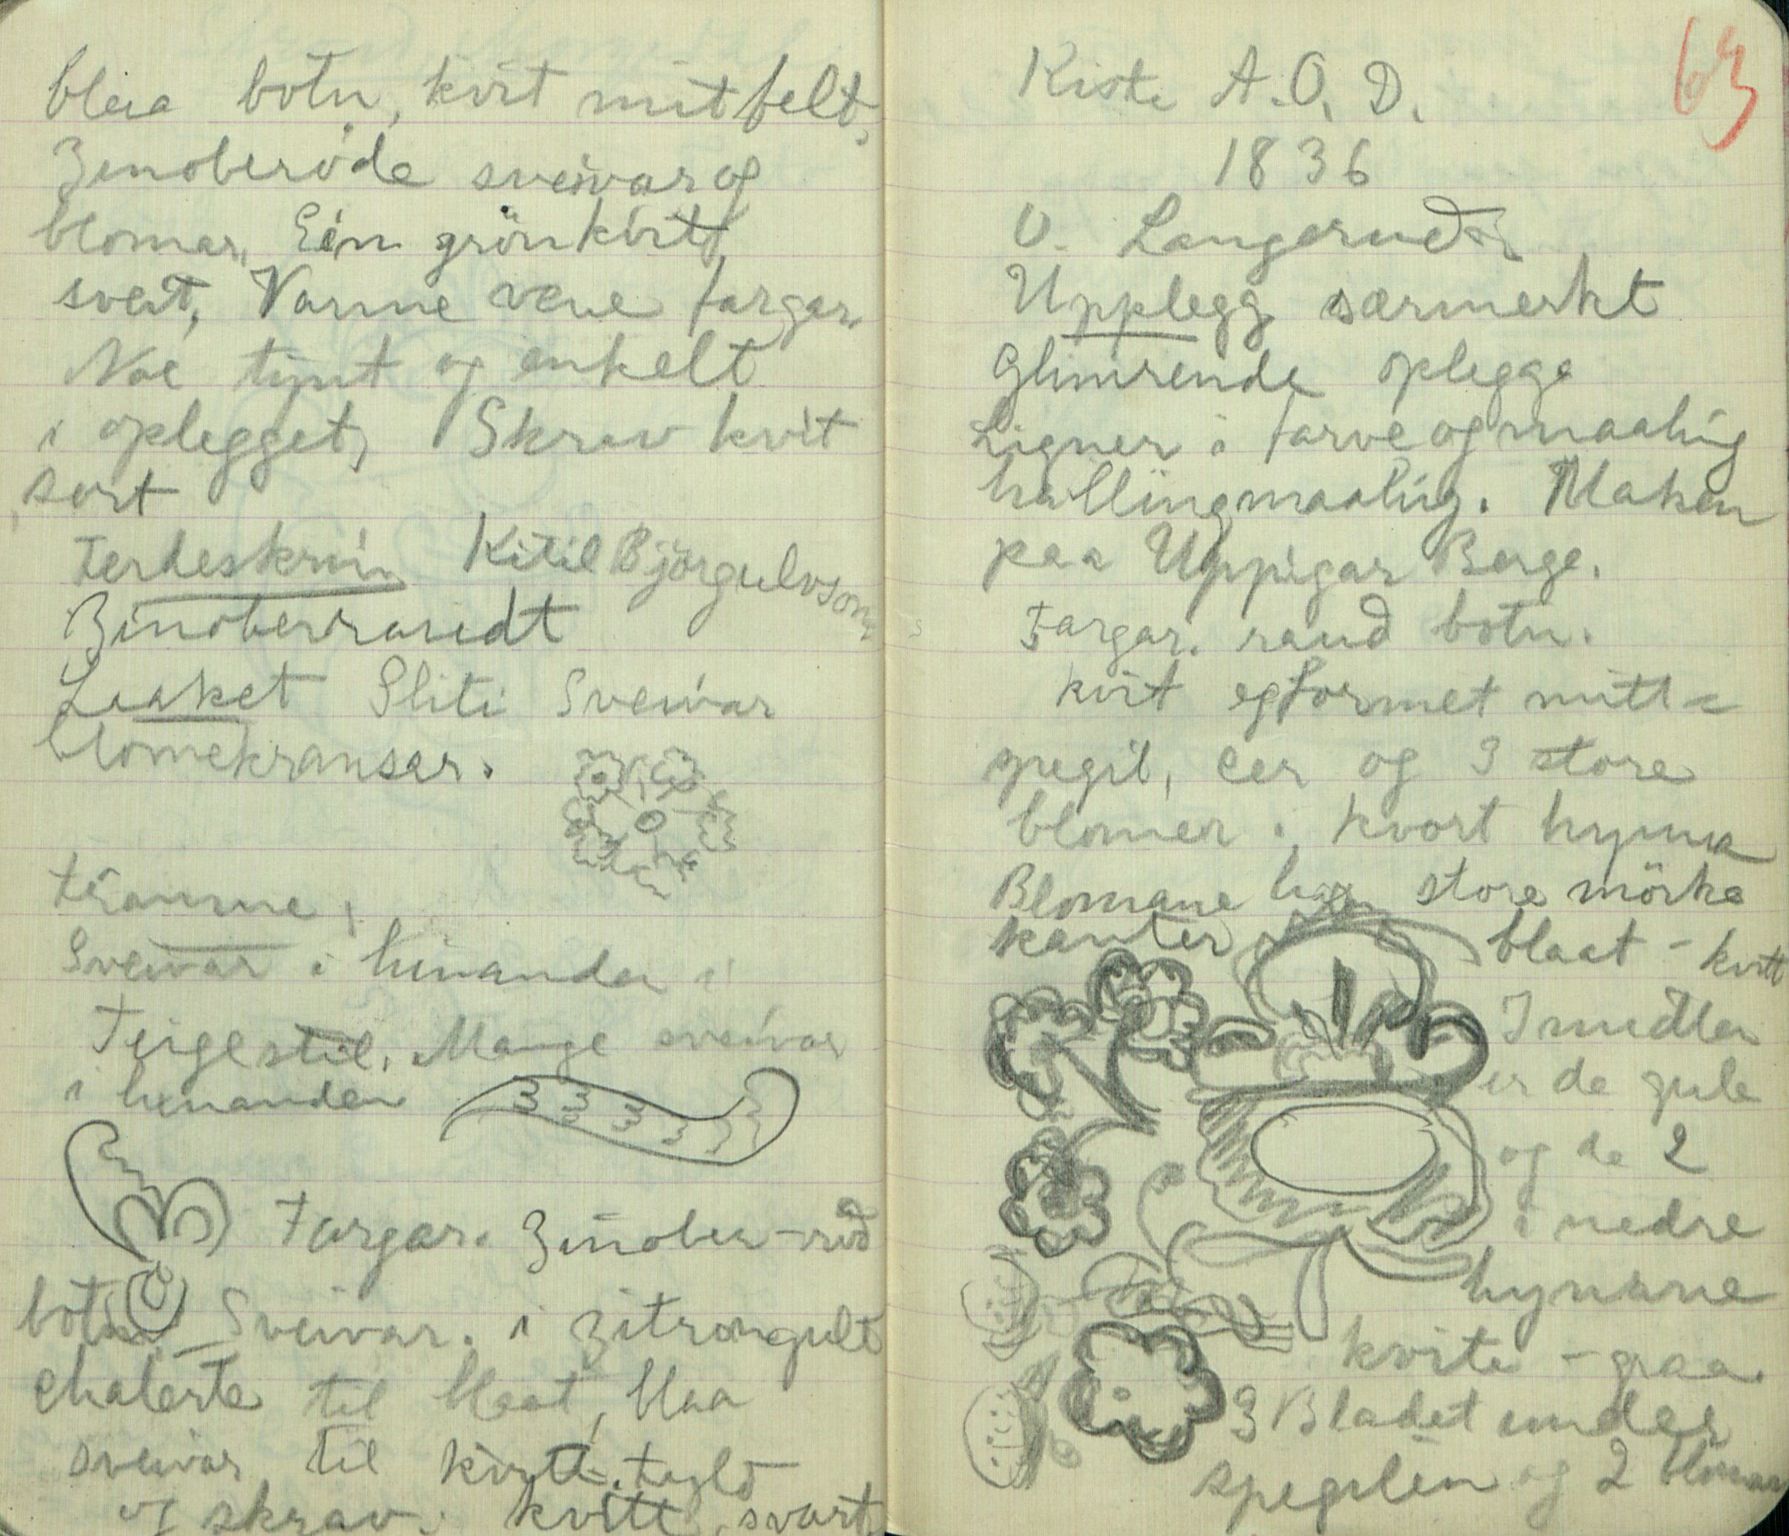 blaa botn, kvit mitfelt,
Zinoberøde sveivar og
blomar, Ein grönkvit
sveit, Varme vene fargar.
Noe tynt og enkelt
i oplegget, Skrav kvit
sort
Ferdeskrin Kitil Björgulvson
Zinoberraudt
Laaket Sliti Sveivar
blomekranser.
tramme,
Sveivar i hinander i
Teigestil, Mange sveivar
i hinander
Fargar. Zinober-rød
botn. Sveivar. i zitrongult
til blaat, blaa
sveivar til kvitt. fyld
og skrav. kvitt, svart
63
Kiste A. O. D.
1836
U. Langerud
Upplegg særmerkt
Glimrende oplegge
Ligner i farve og maaling
hallingmaaling. Maken
paa Uppigar Berge.
Fargar. raud botn.
kvit egformet mitt=
spegil, eer og 3 store
blomer i kvort hyrna
Blomane store mörke
kanter blaat - kvitt
I midten
er de gule
og de 2
i nedre
hyrnane
kvite - graa
3 Bladet under
spegilen og 2 blomar